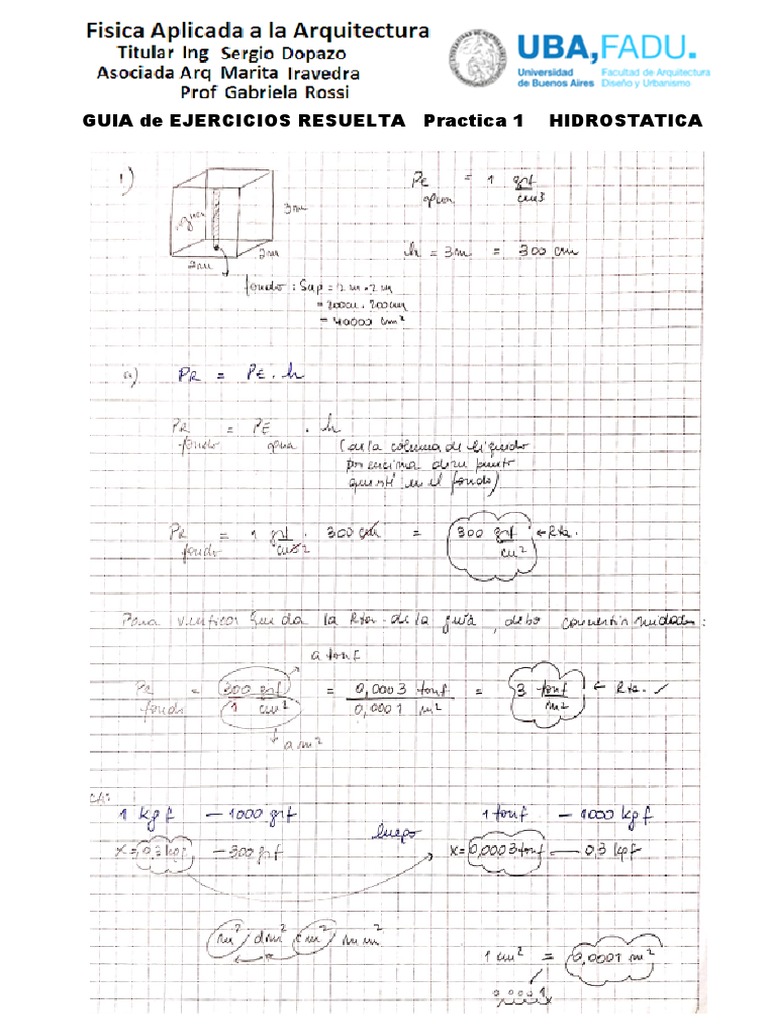 Fisica Aplicada a la Arquitectura
Titular Ing Sergio Dopazo
Asociada Arq Marita Iravedra
Prof Gabriela Rossi
UBA,FADU.
Universidad de Buenos Aires
Facultad de Arquitectura Diseño y Urbanismo
GUIA de EJERCICIOS RESUELTA Practica 1 HIDROSTATICA
1)
PE agua = 1 grf/cm3
3m
h = 3m = 300 cm
2m 2m
fondo: Sup = 2m . 2m
= 200cm . 200cm
= 40000 cm²
a) PR = PE . h
PR fondo = PE agua . h
(de la columna de líquido
por encima de un punto
que esté en el fondo)
PR fondo = 1 grf/cm3 2 . 300 cm = 300 grf/cm² ← Rta.
Para verificar que da la Rta. de la guía, debo convertir unidades:
a tonf
PR fondo = 300 grf/1 cm² = 0,0003 tonf/0,0001 m² = 3 tonf/m² ← Rta. ✓
a m²
CA:
1 kgf — 1000 grf
luego
1 tonf — 1000 kgf
x = 0,3 kgf — 300 grf
x = 0,0003 tonf — 0,3 kgf
m² dm² cm² mm²
1 cm² = 0,0001 m²
0,0001